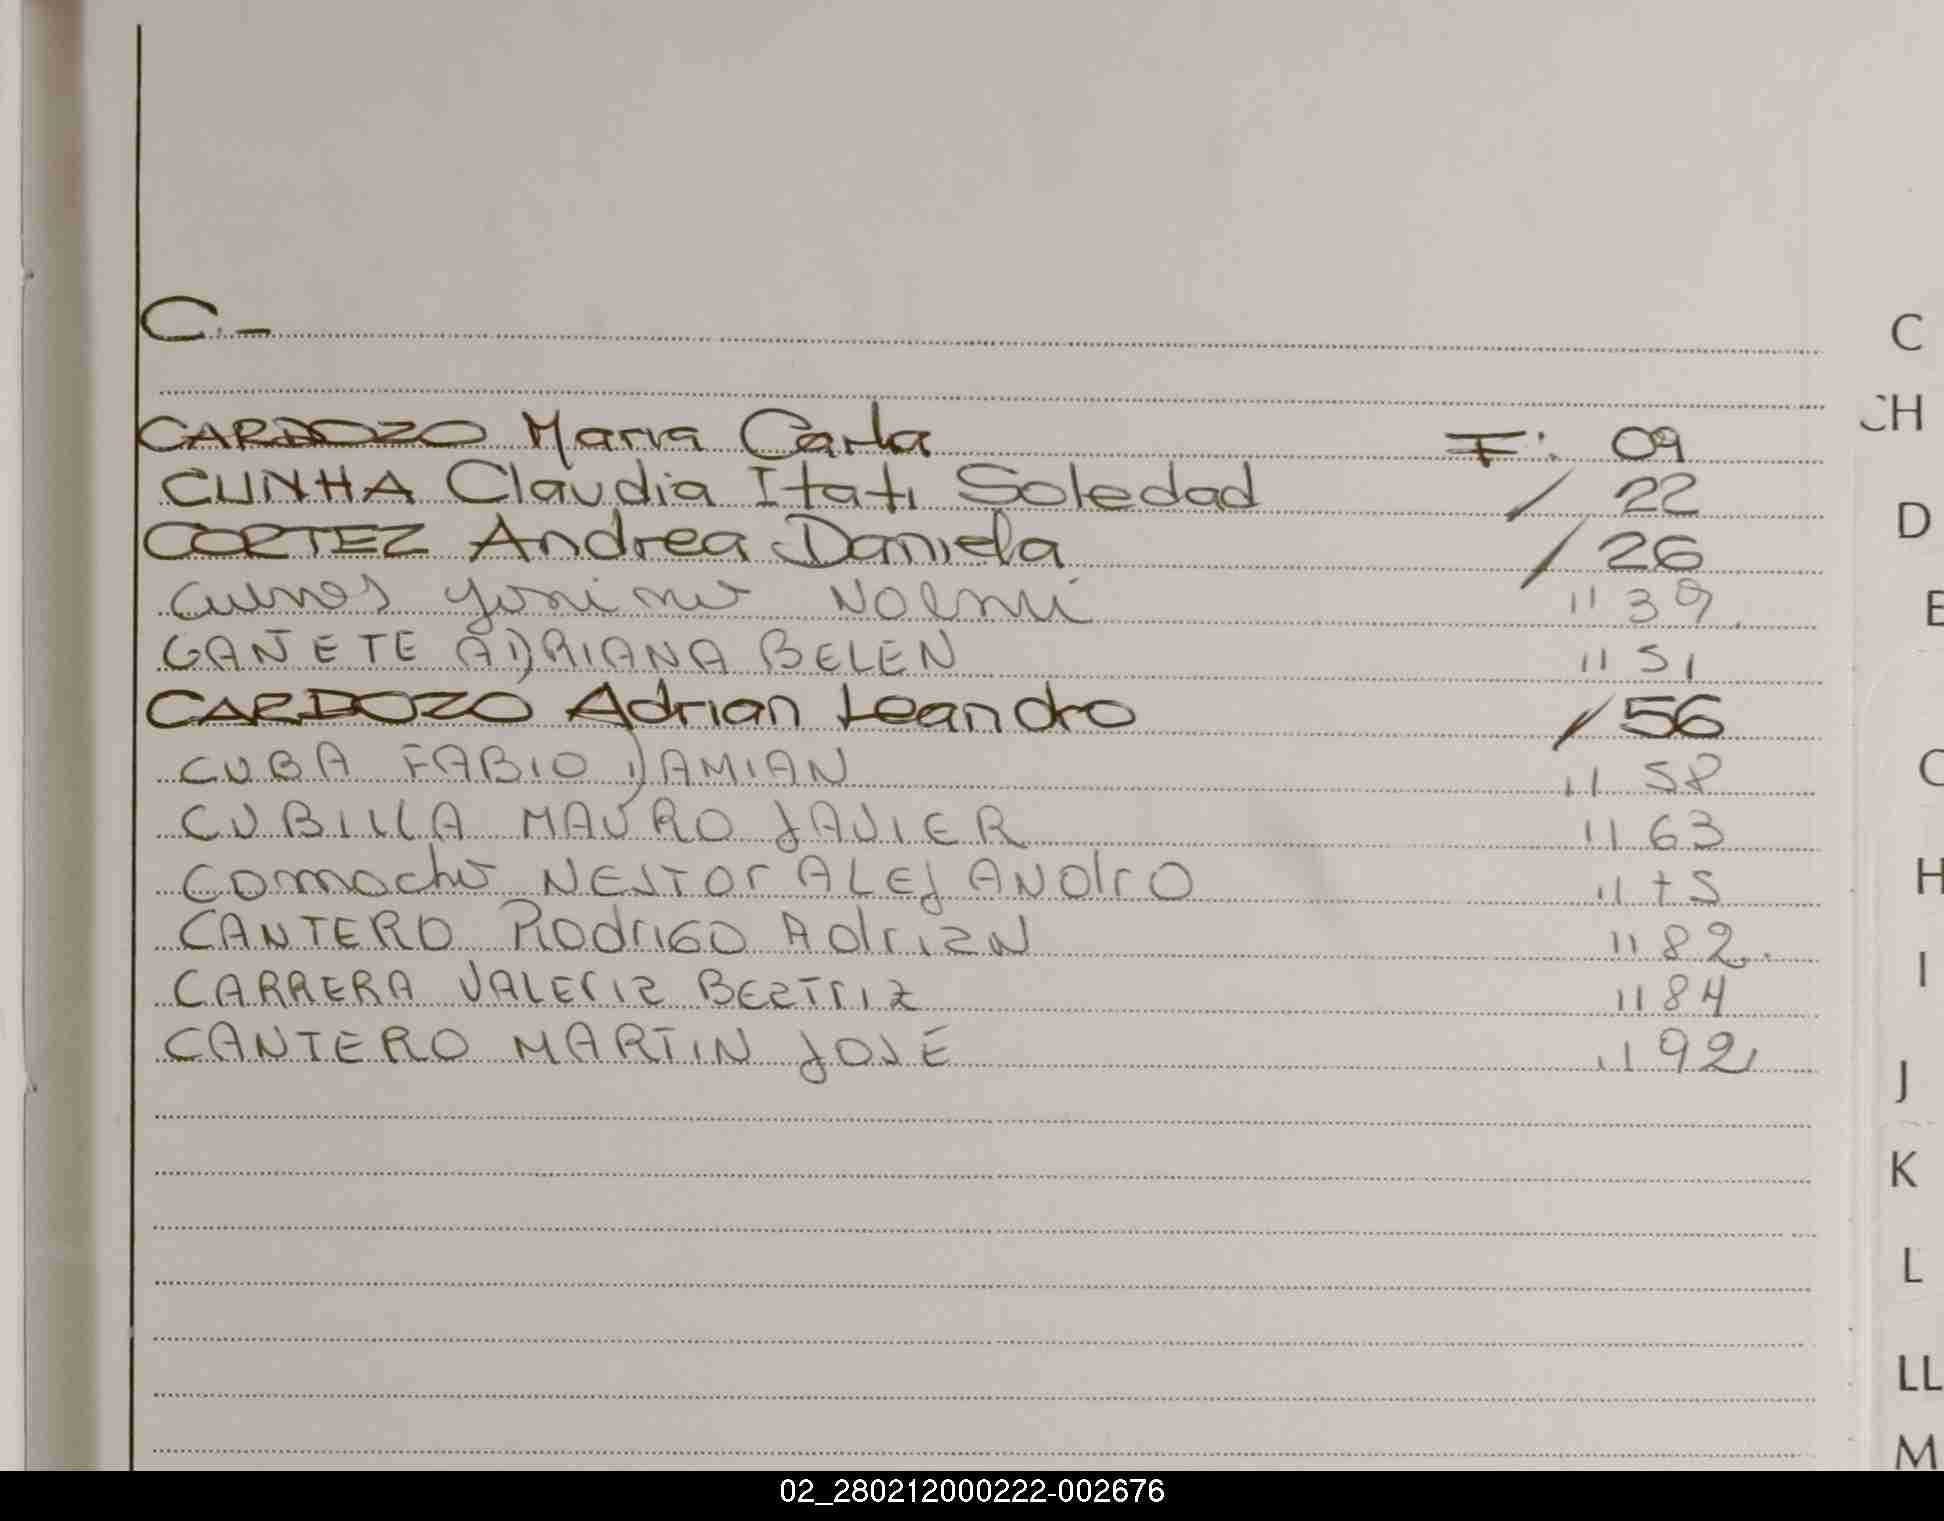 C.-
CARDOZO Maria Carla F: 09
CUNHA Claudia Itati Soledad / 22
CORTEZ Andrea Daniela / 26
Noemi " 39.
CAÑETE ADRIANA BELEN " 51
CARDOZO Adrian Leandro / 56
CUBA FABIO DAMIAN " 58
CUBILLA MAURO JAVIER " 63
Camacho NESTOR ALEJANDRO " 75
CANTERO RODRIGO ADRIAN " 82.
CARRERA VALERIA BEATRIZ " 84
CANTERO MARTIN JOSÉ " 92
C
CH
D
E
G
H
I
J
K
L
LL
M
02_280212000222-002676